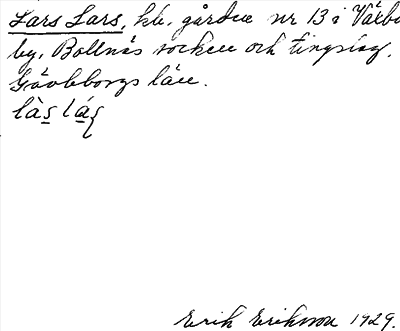 Lars Lars, hb. gården nr 13 i Värbo
by, Bollnäs socken och tingslag,
Gävleborgs län.
làs lás
Erik Eriksson 1929.